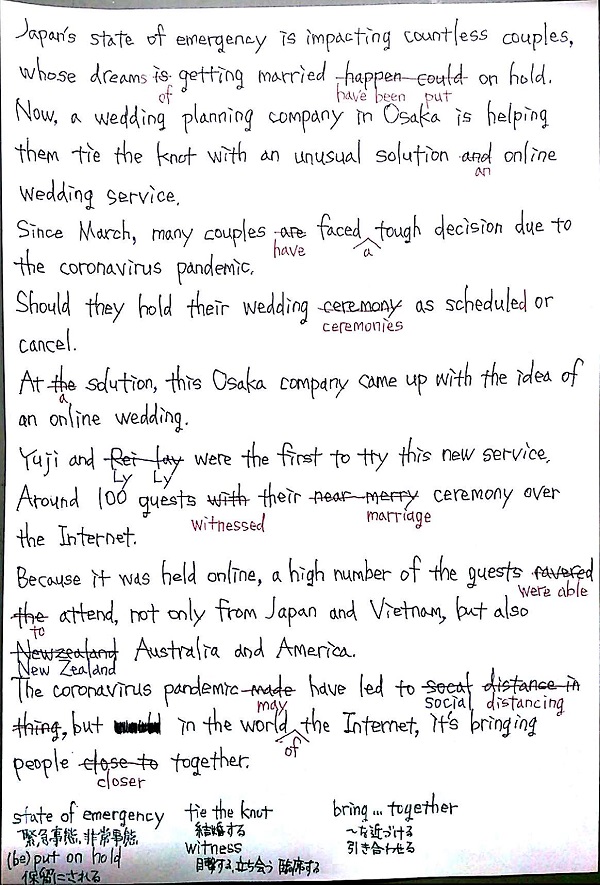 Japan's state of emergency is impacting countless couples,
whose dreams is getting married happen could on hold.
of have been put
Now, a wedding planning company in Osaka is helping
them tie the knot with an unusual solution and online
an
wedding service.
Since March, many couples are faced tough decision due to
have a
the coronavirus pandemic.
Should they hold their wedding ceremony as scheduled or
ceremonies
cancel.
At the solution, this Osaka company came up with the idea of
a
an online wedding.
Yuji and Rei lay were the first to try this new service.
Ly Ly
Around 100 guests with their near merry ceremony over
witnessed marriage
the Internet.
Because it was held online, a high number of the guests favered
were able
the attend, not only from Japan and Vietnam, but also
to
Newzealand Australia and America.
New Zealand
The coronavirus pandemic made have led to socat distance in
may social distancing
thing, but in the world the Internet, it's bringing
of
people close to together.
closer
state of emergency tie the knot bring ... together
緊急事態、非常事態 結婚する 〜を近づける
(be) put on hold witness 引き合わせる
保留にされる 目撃する、立ち会う 臨席する